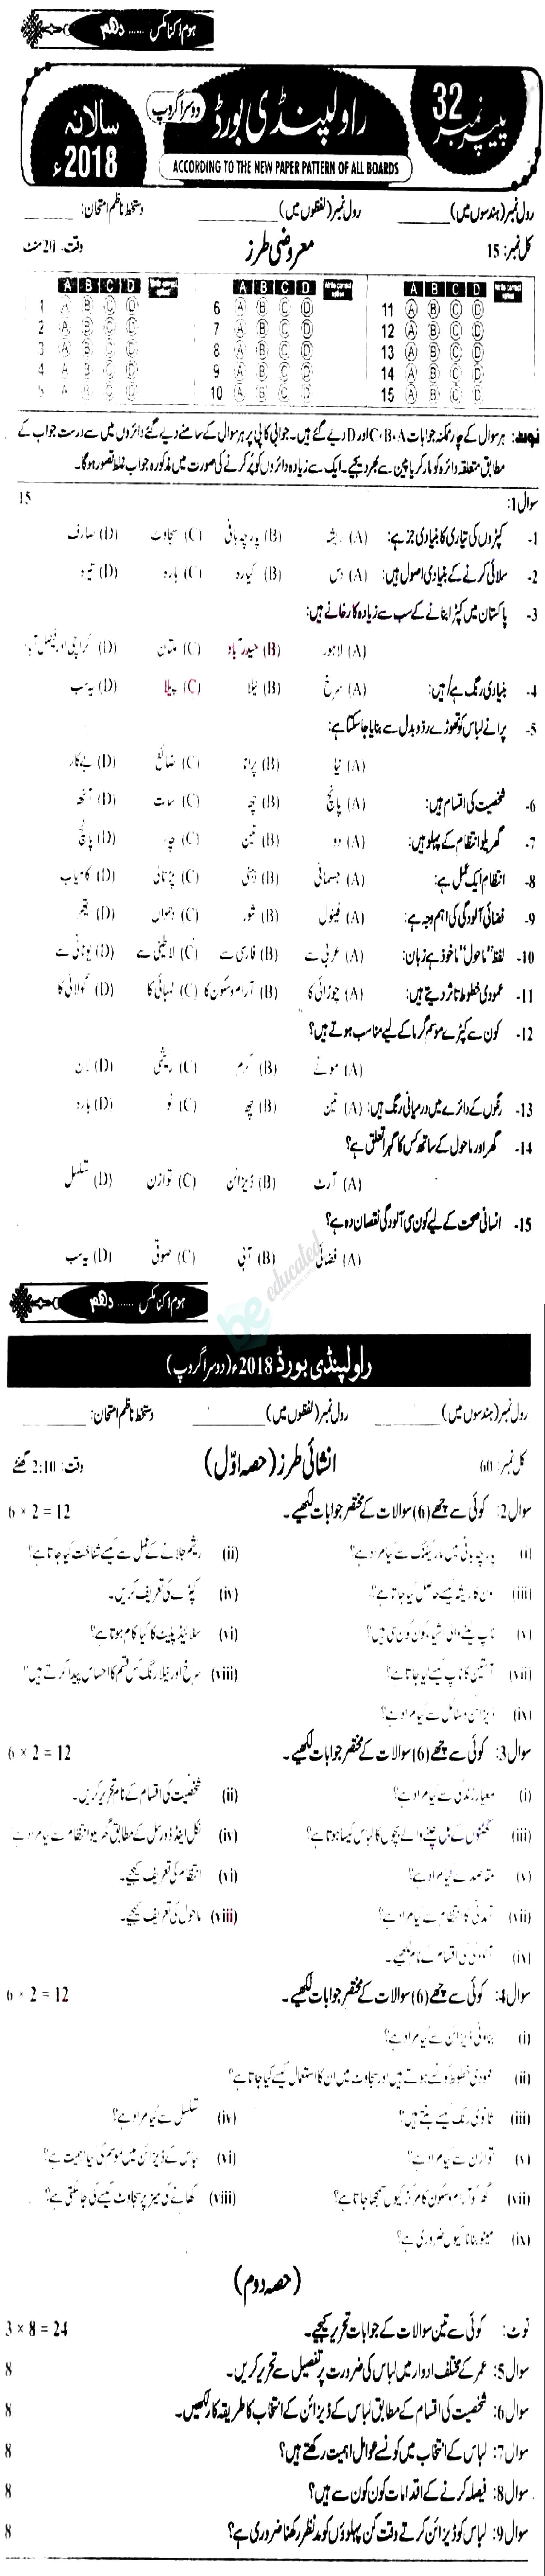 ہوم اکنامکس ...... دہم
پیپر نمبر 32
راولپنڈی بورڈ
دوسرا گروپ
سالانہ 2018ء
ACCORDING TO THE NEW PAPER PATTERN OF ALL BOARDS
رول نمبر (ہندسوں میں) ________ رول نمبر (لفظوں میں) ________ دستخط ناظم امتحان: ________
کل نمبر: 15 معروضی طرز وقت: 20 منٹ
A B C D Write correct option A B C D Write correct option A B C D Write correct option
1 A B C D 6 A B C D 11 A B C D
2 A B C D 7 A B C D 12 A B C D
3 A B C D 8 A B C D 13 A B C D
4 A B C D 9 A B C D 14 A B C D
5 A B C D 10 A B C D 15 A B C D
نوٹ: ہر سوال کے چار ممکنہ جوابات C،B،A اور D دیے گئے ہیں۔ جوابی کاپی پر ہر سوال کے سامنے دیے گئے دائروں میں سے درست جواب کے
مطابق متعلقہ دائرہ کو مارکر یا پین سے بھر دیجیے۔ ایک سے زیادہ دائروں کو پُر کرنے کی صورت میں مذکورہ جواب غلط تصور ہوگا۔
سوال 1: 15
1- کپڑوں کی تیاری کا بنیادی جز ہے: (A) ریشہ (B) پارچہ بافی (C) سجاوٹ (D) صارف
2- سلائی کرنے کے بنیادی اصول ہیں: (A) دس (B) گیارہ (C) بارہ (D) تیرہ
3- پاکستان میں کپڑا بنانے کے سب سے زیادہ کارخانے ہیں:
(A) لاہور (B) حیدر آباد (C) ملتان (D) کراچی اور فیصل آباد
4- بنیادی رنگ ہے/ہیں: (A) سرخ (B) نیلا (C) پیلا (D) یہ سب
5- پرانے لباس کو تھوڑے ردّ و بدل سے بنایا جاسکتا ہے:
(A) نیا (B) پرانا (C) ضائع (D) بے کار
6- شخصیت کی اقسام ہیں: (A) پانچ (B) چھ (C) سات (D) آٹھ
7- گھریلو انتظام کے پہلو ہیں: (A) دو (B) تین (C) چار (D) پانچ
8- انتظام ایک عمل ہے: (A) جسمانی (B) ذہنی (C) پڑتالی (D) کامیاب
9- فضائی آلودگی کی اہم وجہ ہے: (A) فینول (B) شور (C) دھواں (D) ایٹم
10- لفظ "ماحول" ماخوذ ہے زبان: (A) عربی سے (B) فارسی سے (C) لاطینی سے (D) یونانی سے
11- عمودی خطوط تاثر دیتے ہیں: (A) چوڑائی کا (B) آرام و سکون کا (C) لمبائی کا (D) گولائی کا
12- کون سے کپڑے موسم گرما کے لیے مناسب ہوتے ہیں؟
(A) موٹے (B) گرم (C) ریشمی (D) لان
13- رنگوں کے دائرے میں درمیانی رنگ ہیں: (A) تین (B) چھ (C) نو (D) بارہ
14- گھر اور ماحول کے ساتھ کس کا گہرا تعلق ہے؟
(A) آرٹ (B) ڈیزائن (C) توازن (D) تسلسل
15- انسانی صحت کے لیے کون سی آلودگی نقصان دہ ہے؟
(A) فضائی (B) آبی (C) صوتی (D) یہ سب
be educated
ہوم اکنامکس ...... دہم
راولپنڈی بورڈ 2018ء (دوسرا گروپ)
رول نمبر (ہندسوں میں) ________ رول نمبر (لفظوں میں) ________ دستخط ناظم امتحان: ________
کل نمبر: 60 انشائی طرز (حصہ اوّل) وقت: 2:10 گھنٹے
سوال 2: کوئی سے چھے (6) سوالات کے مختصر جوابات لکھیے۔ 6 × 2 = 12
(i) پارچہ بافی میں مارکیٹنگ سے کیا مراد ہے؟ (ii) ریشم جلانے کے عمل سے کیسے شناخت کیا جاتا ہے؟
(iii) اون کا ریشہ کیسے حاصل کیا جاتا ہے؟ (iv) کپڑے کی تعریف کریں۔
(v) ناپ لینے والی اشیاء کون کون سی ہیں؟ (vi) سلائیڈ پلیٹ کا کیا کام ہوتا ہے؟
(vii) آستین کا ناپ کیسے لیا جاتا ہے؟ (viii) سرخ اور نیلا رنگ کس قسم کا احساس پیدا کرتے ہیں؟
(ix) ڈیزائن وسائل سے کیا مراد ہے؟
سوال 3: کوئی سے چھے (6) سوالات کے مختصر جوابات لکھیے۔ 6 × 2 = 12
(i) معیار زندگی سے کیا مراد ہے؟ (ii) شخصیت کی اقسام کے نام تحریر کریں۔
(iii) گھٹنوں کے بل چلنے والے بچوں کا لباس کیسا ہوتا ہے؟ (iv) نکل اینڈ ڈورسل کے مطابق گھریلو انتظام سے کیا مراد ہے؟
(v) مقاصد سے کیا مراد ہے؟ (vi) انتظام کی تعریف کیجیے۔
(vii) آمدنی کا انتظام سے کیا مراد ہے؟ (viii) ماحول کی تعریف کیجیے۔
(ix) آلودگی کی اقسام کے نام لکھیے۔
سوال 4: کوئی سے چھے (6) سوالات کے مختصر جوابات لکھیے۔ 6 × 2 = 12
(i) بناوٹی ڈیزائن سے کیا مراد ہے؟
(ii) عمودی خطوط کونسے ہوتے ہیں اور سجاوٹ میں ان کا استعمال کیسے کیا جاتا ہے؟
(iii) ثانوی رنگ کیسے بنتے ہیں؟ (iv) تسلسل سے کیا مراد ہے؟
(v) توازن سے کیا مراد ہے؟ (vi) لباس کے ڈیزائن میں موسم کی کیا اہمیت ہے؟
(vii) گھر کو آرام و سکون کا مرکز کیوں سمجھا جاتا ہے؟ (viii) کھانے کی میز پر سجاوٹ کیسے کی جاسکتی ہے؟
(ix) مینو بنانا کیوں ضروری ہے؟
(حصہ دوم)
نوٹ: کوئی سے تین سوالات کے جوابات تحریر کیجیے۔ 3 × 8 = 24
سوال 5: عمر کے مختلف ادوار میں لباس کی ضرورت پر تفصیل سے تحریر کریں۔ 8
سوال 6: شخصیت کی اقسام کے مطابق لباس کے ڈیزائن کے انتخاب کا طریقہ کار لکھیں۔ 8
سوال 7: لباس کے انتخاب میں کونسے عوامل اہمیت رکھتے ہیں؟ 8
سوال 8: فیصلہ کرنے کے اقدامات کون کون سے ہیں؟ 8
سوال 9: لباس کو ڈیزائن کرتے وقت کن پہلوؤں کو مدنظر رکھنا ضروری ہے؟ 8